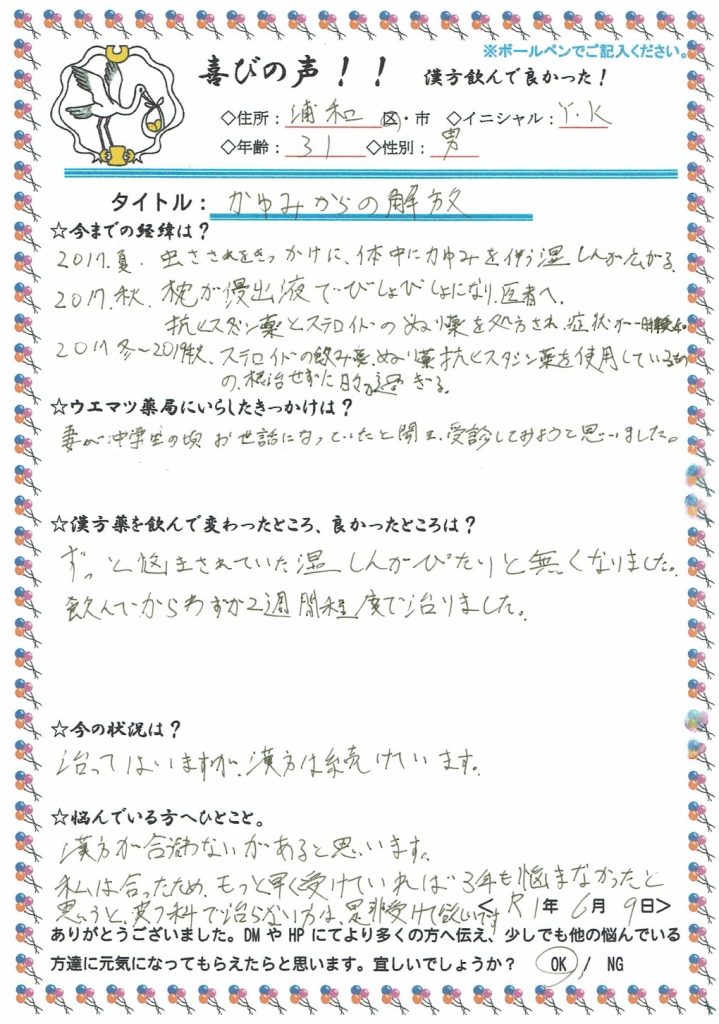 ※ボールペンでご記入ください。
喜びの声！！ 漢方飲んで良かった！
◇住所：浦和 区・市 ◇イニシャル：Y.K
◇年齢：31 ◇性別：男
タイトル：かゆみからの解放
☆今までの経緯は？
2017.夏. 虫さされをきっかけに、体中にかゆみを伴う湿しんが広がる。
2017.秋. 枕が浸出液でびしょびしょになり、医者へ。
抗ヒスタジン薬とステロイドのぬり薬を処方され、症状が一時
2017冬〜2019 ステロイドの飲み薬、ぬり薬、抗ヒスタジン薬を使用しているもの
の、根治せずに日が過ぎる。
☆ウエマツ薬局にいらしたきっかけは？
妻が中学生の頃お世話になっていたと聞き、受診してみようと思いました。
☆漢方薬を飲んで変わったところ、良かったところは？
ずっと悩まされていた湿しんがぴたりと無くなりました。
飲んでからわずか2週間程度で治りました。
☆今の状況は？
治ってはいますが、漢方は続けています。
☆悩んでいる方へひとこと。
漢方が合う合わないがあると思います。
私は合ったため、もっと早く受けていれば3年も悩まなかったと
思うと、皮フ科で治らない方は、是非受けて欲しいです
＜R1年 6月 9日＞
ありがとうございました。DM や HP にてより多くの方へ伝え、少しでも他の悩んでいる
方達に元気になってもらえたらと思います。宜しいでしょうか？ OK / NG